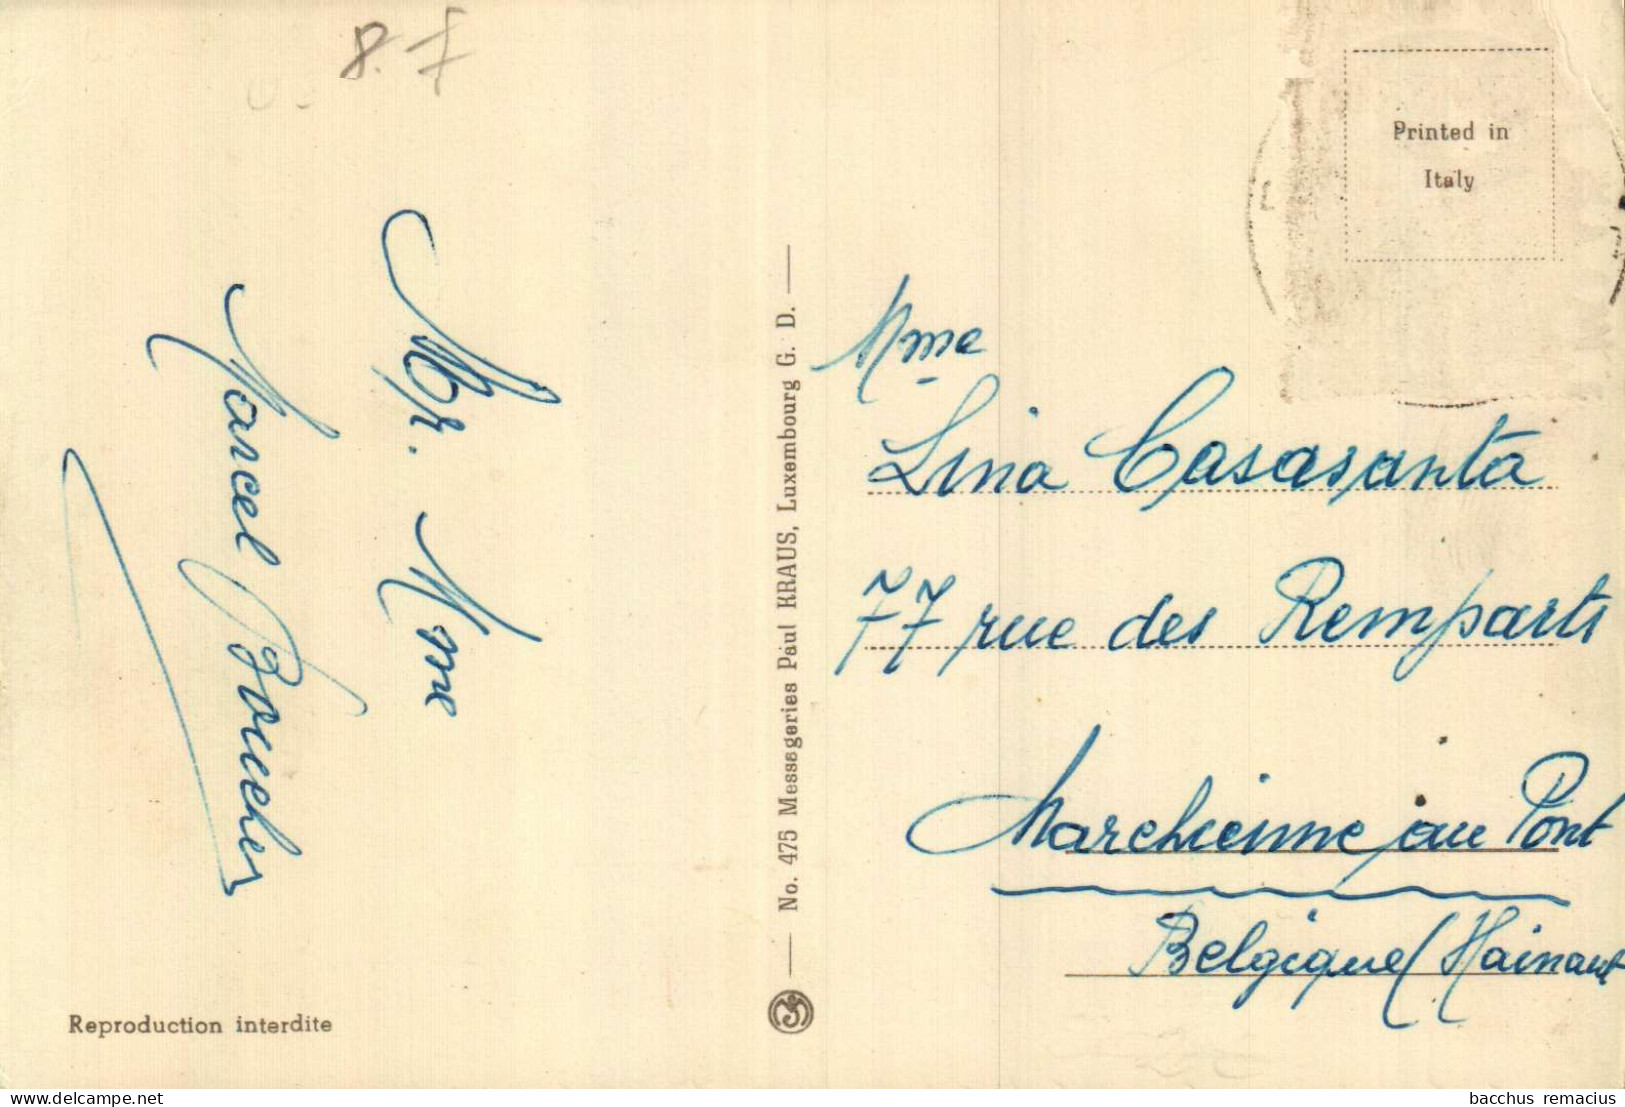 8.7
Mr. Mme
Marcel Boucher
Reproduction interdite
No. 475 Messageries Paul KRAUS, Luxembourg G. D.
Printed in
Italy
Mme
Lina Casasanta
77 rue des Remparts
Marchienne au Pont
Belgique (Hainaut
www.delcampe.net
bacchus remacius